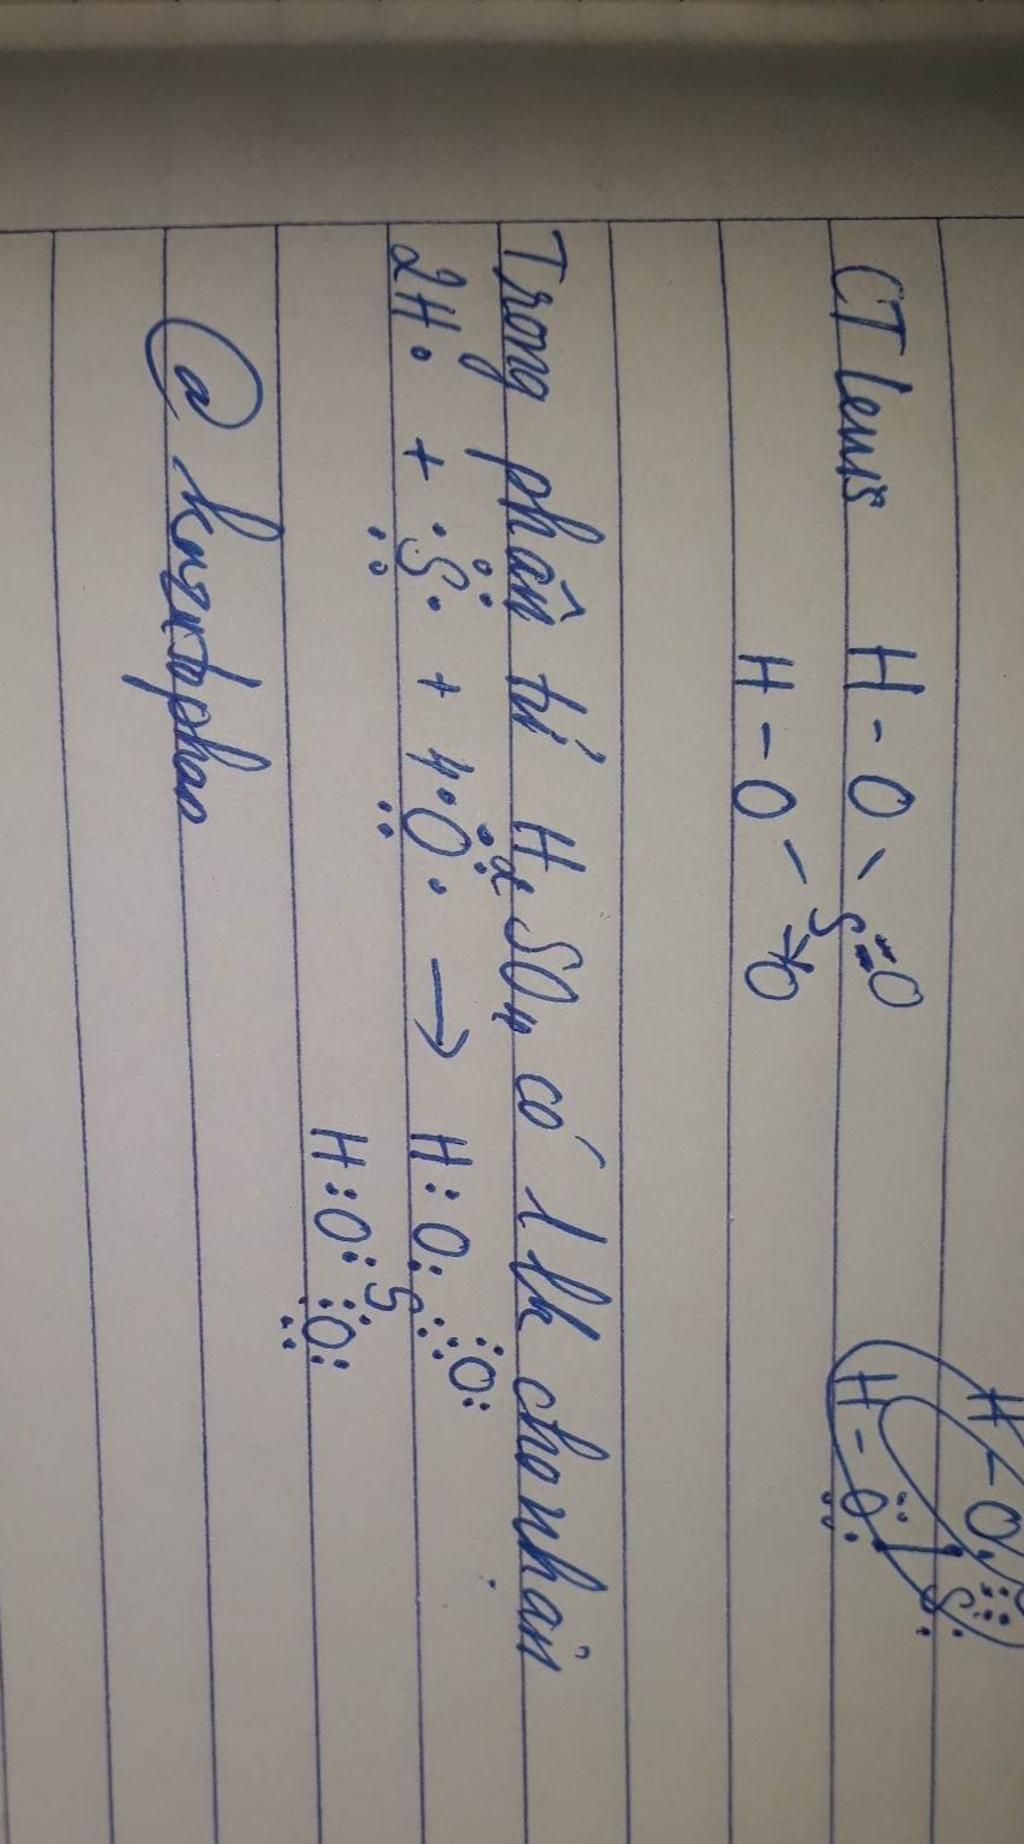 CT lewis H - O S = O
H - O O
Trong phân tử H2SO4 có 1 lk cho nhận
2H• + •S• + 4•O• → H:O: S ::O:
H:O: :O:
@ knzutophao